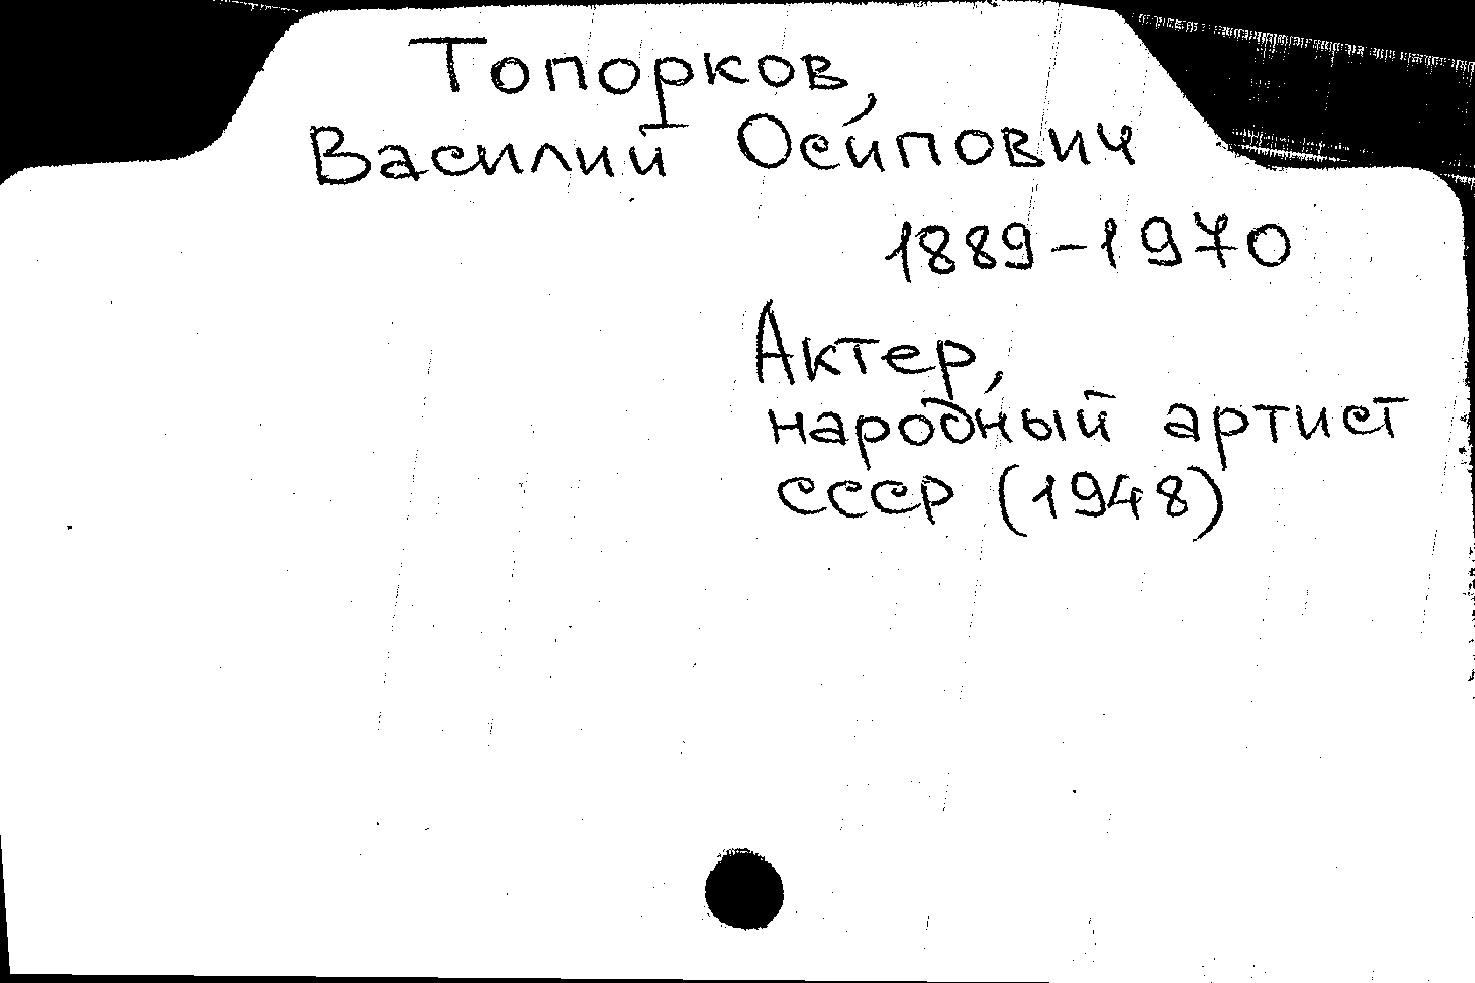 Топорков,
Василий Осипович
1889-1970
Актер,
народный артист
СССР (1948)